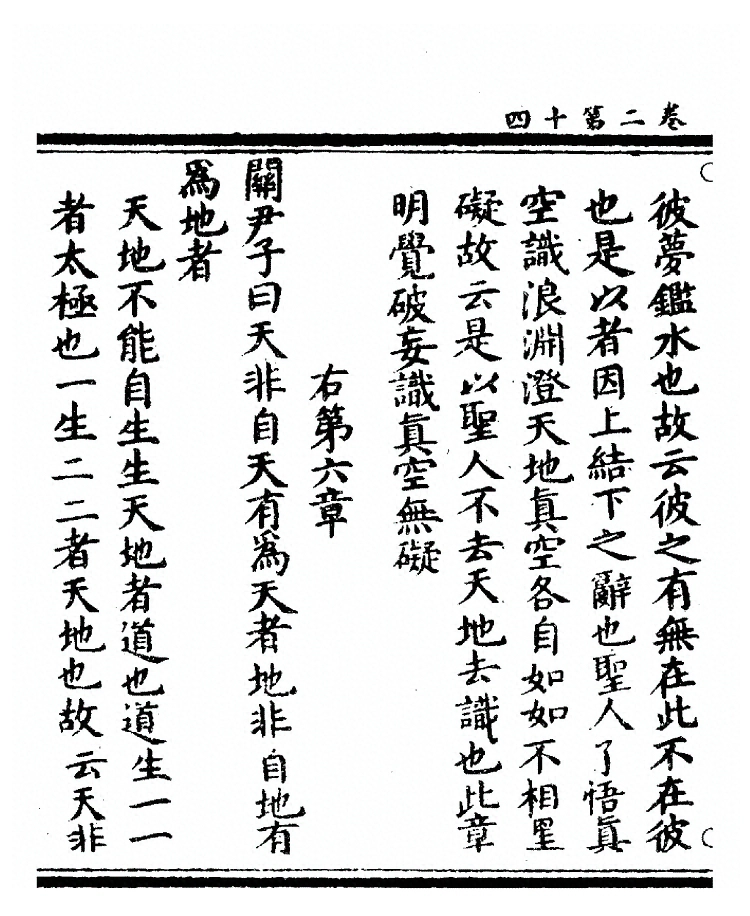 卷二第十四
彼夢鑑水也故云彼之有無在此不在彼
也是以者因上結下之辭也聖人了悟眞
空識浪淵澄天地眞空各自如如不相里
礙故云是以聖人不去天地去識也此章
明覺破妄識眞空無礙
右第六章
關尹子曰天非自天有爲天者地非自地有
爲地者
天地不能自生生天地者道也道生一一
者太極也一生二二者天地也故云天非